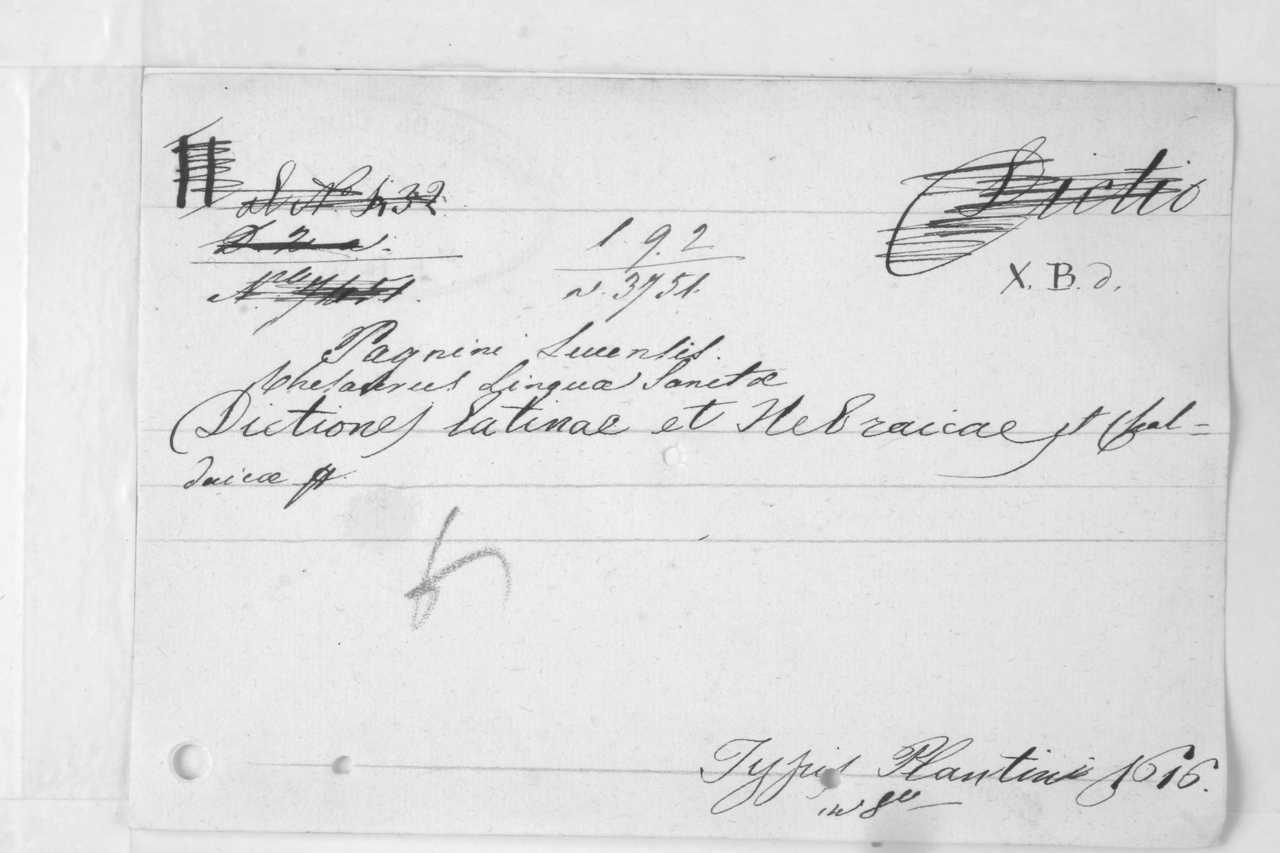 Dictio
1. 9. 2
N. 3751.
X. B. d.
Pagnini Lucensis.
Thesaurus Linguæ Sanctæ
Dictiones latinae et Hebraicae et Chal=
daicæ
Typis Plantini 1616.
in 8vo